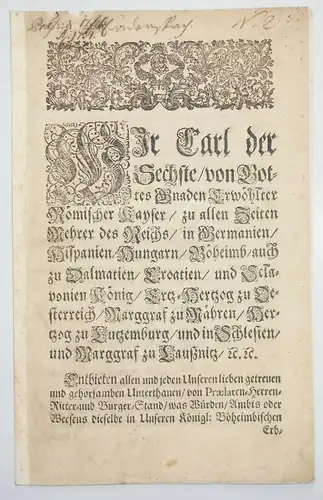 N. 2.
Wir Carl der
Sechste/von Got-
tes Gnaden Erwöhlter
Römischer Kayser/ zu allen Zeiten
Mehrer des Reichs/ in Germanien/
Hispanien/Hungarn/ Böheimb/auch
zu Dalmatien/Croatien/ und Scla-
vonien König/ Ertz-Hertzog zu Oe-
sterreich/Marggraf zu Mähren/Her-
tzog zu Lutzemburg/ und in Schlesien/
und Marggraf zu Laußnitz/ ꝛc. ꝛc.
Entbieten allen und jeden Unseren lieben getreuen
und gehorsamben Unterthanen/ von Prælaten-Herren-
Ritter-und Burger-Stand/was Würden/ Ambts oder
Weesens dieselbe in Unseren Königl: Böheimbischen
Erb-